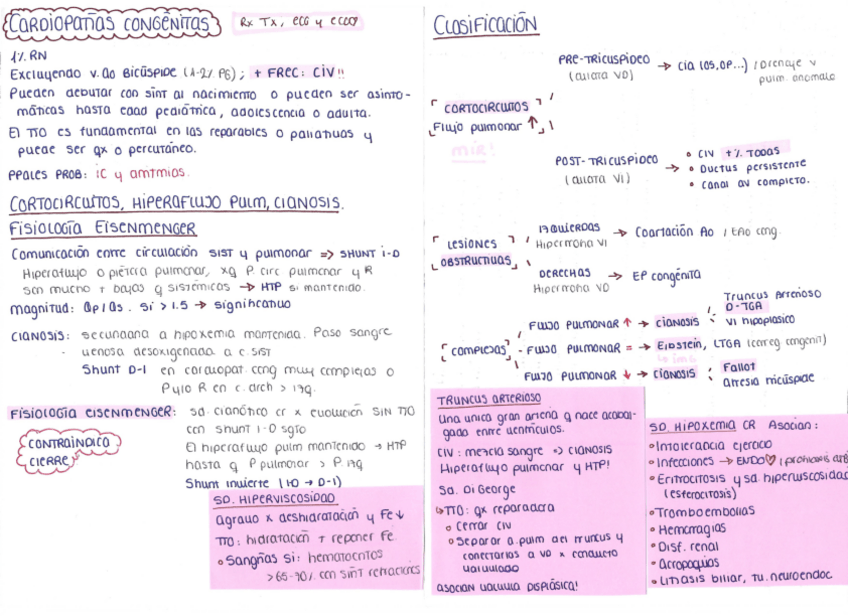 CARDIOPATÍAS CONGÉNITAS
Rx Tx, ECG y ECOC
1% RN
Excluyendo v. Ao Bicúspide (1-2% PG); + FREC: CIV!!
Pueden debutar con SINT al nacimiento o pueden ser asinto-
máticas hasta edad pediátrica, adolescencia o adulta.
El TTO es fundamental en las reparables o paliativas y
puede ser qx o percutáneo.
PPALES PROB: IC y arritmias.
CORTOCIRCUITOS, HIPERAFLUJO PULM, CIANOSIS.
FISIOLOGÍA EISENMENGER
Comunicación entre circulación SIST y pulmonar => SHUNT I-D
Hiperaflujo o plétora pulmonar, xq P. circ pulmonar y R
son mucho + bajas q sistémicas → HTP si mantenido.
Magnitud: Qp/Qs. Si > 1.5 → significativo
CIANOSIS: secundaria a hipoxemia mantenida. Paso sangre
venosa desoxigenada a c. SIST
Shunt D-I en cardiopat. cong muy complejas o
P y/o R en c. drch > izq.
FISIOLOGÍA EISENMENGER: sd. cianótico cr x evolución SIN TTO
con shunt I-D sgto
El hiperaflujo pulm mantenido → HTP
hasta q P pulmonar > P. izq
Shunt invierte (I-D → D-I)
CONTRAINDICO
CIERRE
SD. HIPERVISCOSIDAD
Agravo x deshidratación y Fe↓
TTO: hidratación + reponer Fe.
• Sangrías si: hematocritos
>65-70% con SINT refractarios
Clasificación
PRE-TRICUSPÍDEO → CIA (OS, OP...) / Drenaje v
(dilata VD) pulm. anómalo
CORTOCIRCUITOS
Flujo pulmonar ↑
MIR!
POST-TRICUSPÍDEO →
(dilata VI)
• CIV +% TODAS
• Ductus persistente
• Canal AV completo.
LESIONES
OBSTRUCTIVAS
IZQUIERDAS → Coartación Ao / EAo cong.
Hipertrofia VI
DERECHAS → EP congénita
Hipertrofia VD
COMPLEJAS
FLUJO PULMONAR ↑ → CIANOSIS
Truncus Arterioso
D-TGA
VI hipoplásico
FLUJO PULMONAR = → EIBSTEIN, LTGA (correg. congénit)
FLUJO PULMONAR ↓ → CIANOSIS
Fallot
Atresia tricúspide
TRUNCUS ARTERIOSO
Una única gran arteria q nace acabal-
gada entre ventrículos.
CIV: mezcla sangre => CIANOSIS
Hiperaflujo pulmonar y HTP!
Sd. Di George
↳ TTO: qx reparadora
• Cerrar CIV
• Separar a. pulm del truncus y
conectarlas a VD x conducto
valvulado
ASOCIAN VALVULA DISPLÁSICA!
SD. HIPOXEMIA CR Asocian:
• Intolerancia ejercicio
• Infecciones → ENDO♡
• Eritrocitosis y sd. hiperviscosidad
(esferocitosis)
• Tromboembolias
• Hemorragias
• Disf. renal
• Acropaquias
• Litiasis biliar, tu. neuroendoc